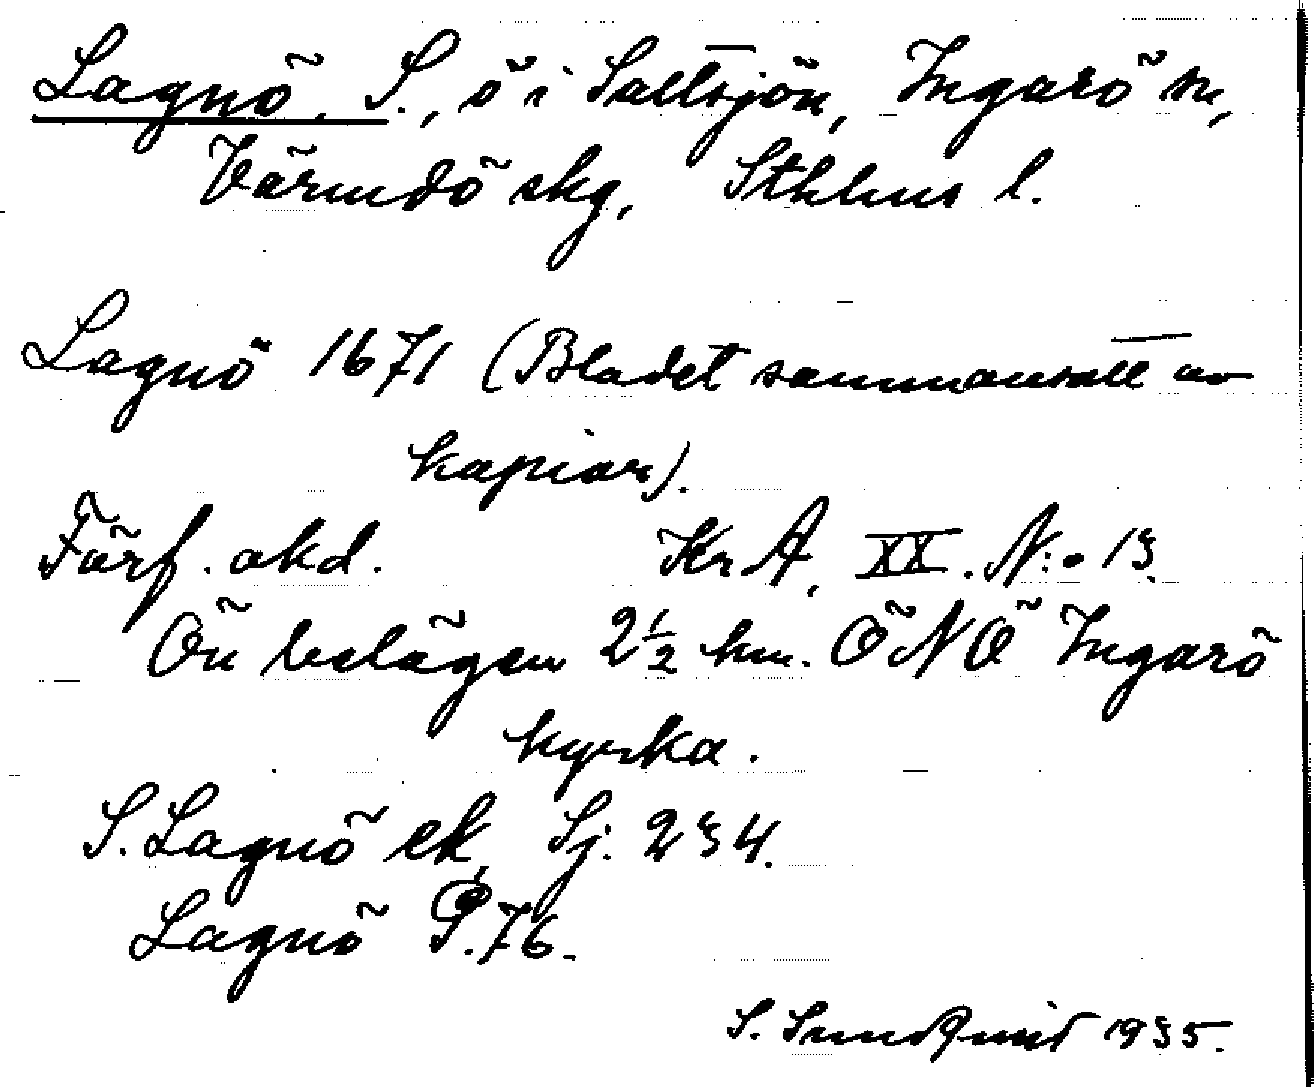 Lagnö, S., ö i Saltsjön, Ingarö sn,
Värmdö skg, Sthlms l.
Lagnö 1671 (Bladet sammansatt av
kopior).
Förf. okd. KrA, XX. N:o 13.
Ön belägen 2½ km. ÖNÖ Ingarö
kyrka.
S. Lagnö ek, Sj. 234.
Lagnö P. 76.
S. Sundquist 1935.